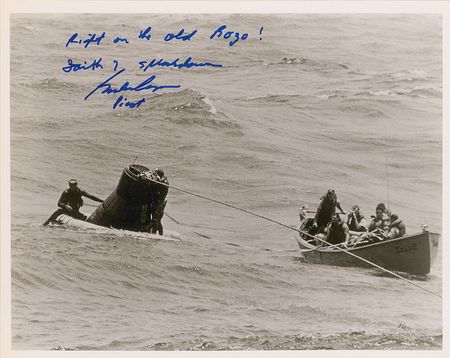 Right on the old Bozo!
Faith 7 splashdown
Gordon Cooper
Pilot